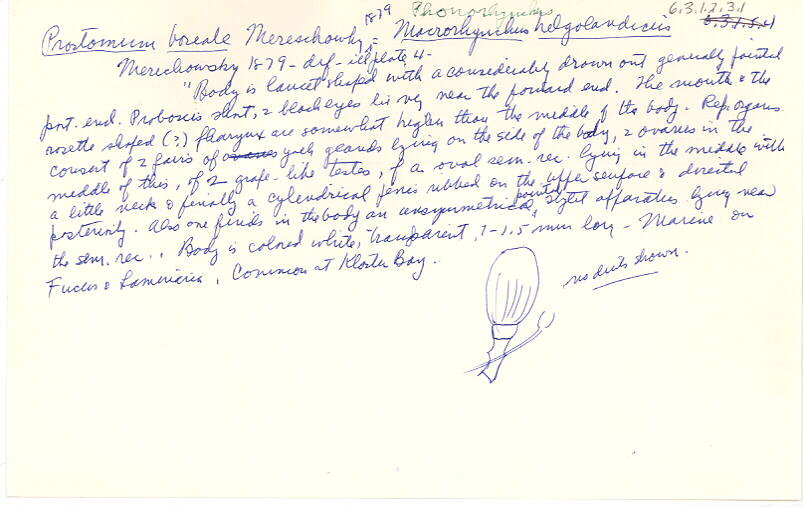 1879 Phonorhynchus 6.3.1.2.3.1
Prostomum boreale Mereschowky = Macrorhynchus helgolandicus 6.3.1.5.1
Merechowsky 1879 - def - ill plate 4 -
"Body is lancet shaped with a considerably drawn out generally pointed
post. end. Proboscis short, 2 black eyes lie very near the forward end. The mouth & the
rosette shaped (?) pharynx are somewhat higher than the middle of the body. Rep organs
consist of 2 pairs of yolk glands lying on the side of the body, 2 ovaries in the
middle of this, of 2 grape-like testes, of a oval sem. rec. lying in the middle with
a little neck & finally a cylindrical penis ribbed on the upper surface & directed
posteriorly. Also one finds in the body an unsymmetrical pointed stylet apparatus lying near
the sem. rec.. Body is colored white, transparent, 1-1.5 mm long - Marine on
Fucus & Laminaria, Common at Kloster Bay.
no ducts shown.